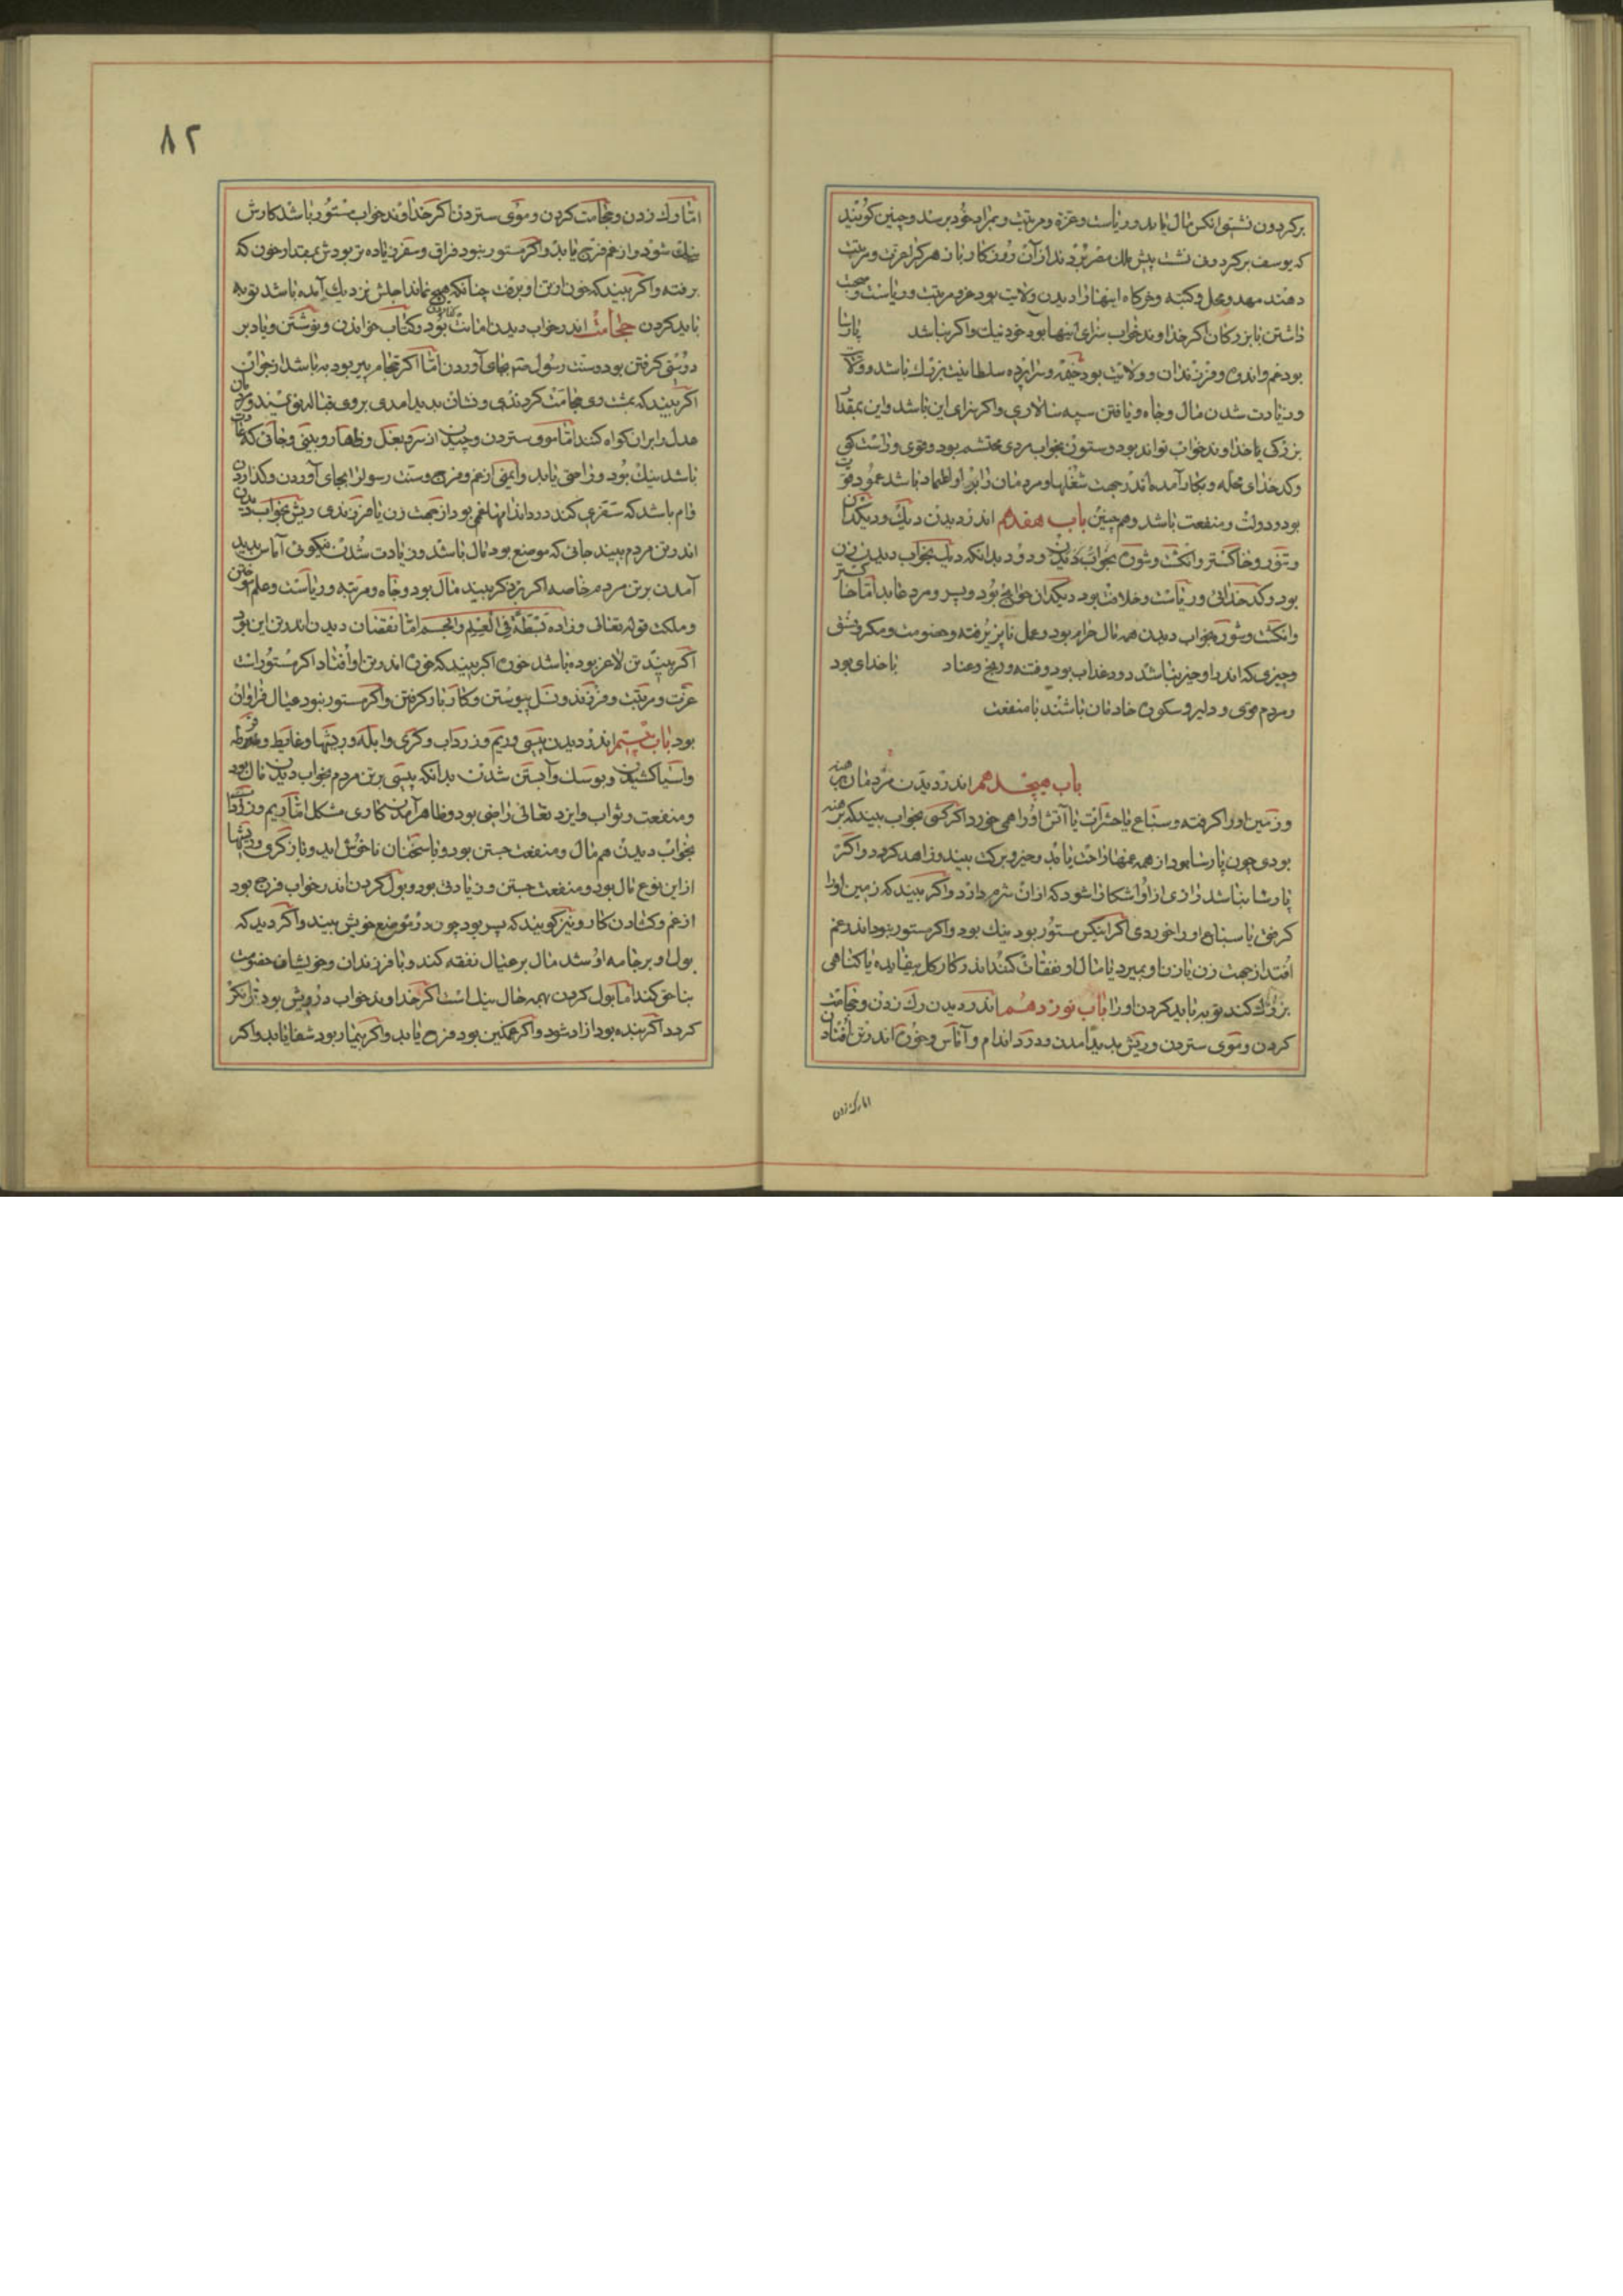 برگردون نشستی انکس مال یابد و ریاست و عزت و مرتبت و بمراد خود برسد و چنین گویند
که یوسف بر گردون نشست پیش ملک مصر بردند از آن روزگار باز هر کرا عزت و مرتبت
دهند مهد و محمل و کنبه و خرگاه اینها را دیدن ولایت بود و مرتبت و ریاست و صحبت
داشتن با بزرگان اگر خداوند خواب سزای اینها بود خود نیک و اگر نباشد پارسا
بود غم و اندوه و فرزندان و ولایت بود خیمه و سراپرده سلطانیت بزرگ باشد و ولایت
و زیادت شدن مال و جاه و یافتن سپه سالاری و اگر سزای این باشد و این بمقدار
بزرگی یا خداوند خواب تواند بود و ستون بخواب مردی محتشم بود و قوی و راست گوی
و کدخدای محله و بکار آمده اندر جهت شغلها و مردمان را بر او اعتماد باشد عمود قوت
بود و دولت و منفعت باشد و هم چنین باب هفدهم اندر دیدن دیک و دیکدان
و تنور و خاکستر و انگشت و شون بخواب دیدن و دود بدانکه دیک بخواب دیدن زن
بود و کدخدائی و ریاست و خلافت بود دیگدان خواجه بود و پسر و مرد عابد اما خاکستر
وانگشت و شور بخواب دیدن همه مال حرام بود و عمل ناپذیرفته و خصومت و مکر و
و چیزی که اندر او خیر نباشد دود عذاب بود و فتنه و رنج و عناد با خدای بود
و مردم قوی و دلیر و ستون خادمان باشند با منفعت
باب هیجدهم اندر دیدن مردمان برهنه
و زمین او را گرفته و سباع یا حشرات یا آتش او را همی خورد اگر کسی بخواب بیند که برهنه
بودی چون پارسا بود از همه غمها راحت یابد و خیر و برکت بیند و زاهد گردد و اگر
پارسا نباشد رازی از او آشکارا شود که از آن شرم دارد و اگر بیند که زمین او را
گرفتی یا سباع او را خوردی اگر اینکس مستور بود نیک بود و اگر مستور نبود اندر غم
افتد از جهت زن یا زن او بمیرد یا مال او نفقات کند اندر کار بیفایده یا گناهی
بزرگ کند توبه باید کردن او را باب نوزدهم اندر دیدن رک زدن و حجامت
کردن و موی ستردن و ریش پدید آمدن و درد اندام و آماس و خون اندر تن افتادن
اما رک زدن
۸۲
اما رک زدن و حجامت کردن و موی ستردن اگر خداوند خواب مستور باشد کارش
نیک شود و از غم فرج یابد و اگر مستور نبود فراق و سفر زیاده تر بودش بمقدار خون که
برفته و اگر بیند که خون از تن او برفت چنانکه هیچ نماند اجلش نزدیک آمده باشد توبه
باید کردن حجامت اندر خواب دیدن امانت بود و کتاب خواندن و نوشتن و یاد بر
دوستی گرفتن بود و سنت رسول بجای آوردن اما اگر حجام پیر بود به باشد از جوان
اگر بیند که پشت وی حجامت کردندی و نشان پدید آمدی بر وی قباله نویسند و
عدل بر آن گواه کنند اما مو ستردن و چیدن از سر و بغل و ظهار و بینی و جائی که
باشد نیک بود و راحتی یابد و ایمنی از غم و فرج و سنت رسول را بجای آوردن و گذاردن
وام باشد که سفری کند درد اندامها غمی بود از جهت زن یا فرزندی ریش بخواب دیدن
اندر تن مردم بیند جائی که موضع بود مال باشد و زیادت شدن نیکوئی آماس پدید
آمدن بر تن مردم خاصه اگر بر ذکر بیند مال بود و جاه و مرتبه و ریاست و علم
و ملکت قوله تعالی و زاده بسطة فی العلم والجسم اما نقصان دیدن اندر تن این بود
اگر بیند تن لاغر بوده باشد خون اگر بیند که خون اندر تن او افتاد اگر مستور است
عزت و مرتبت و فرزند و نسل پیوستن و کار بار گرفتن و اگر مستور نبود عیال فراوان
بود باب بیستم اندر دیدن پیسی و ریم و زرداب و کری و ابله و ریشها و غایط و
و آسیا کشیدن و بوسک و آبستن شدن بدانکه پیسی بر تن مردم بخواب دیدن مال بود
و منفعت و ثواب و ایزد تعالی راضی بود و ظاهر آمدن کاری مشکل اما ریم و زرداب
بخواب دیدن هم مال و منفعت جستن بود و یا سخنان ناخوش آید و باز کری و ریشها
از این نوع مال بود و منفعت جستن و زیادتی بود و بول کردن اندر خواب فرج بود
از غم و گشادن کار و نیز گویند که پسر بود چون در موضع خویش بیند و اگر دید که
بول او بر جامه او شد مال بر عیال نفقه کند و با فرزندان و خویشان خصومت
بناحق کند اما بول کردن بهمه حال نیک است اگر خداوند خواب درویش بود توانگر
گردد اگر بنده بود ازاد شود و اگر غمگین بود فرج یابد و اگر بیمار بود شفا یابد و اگر